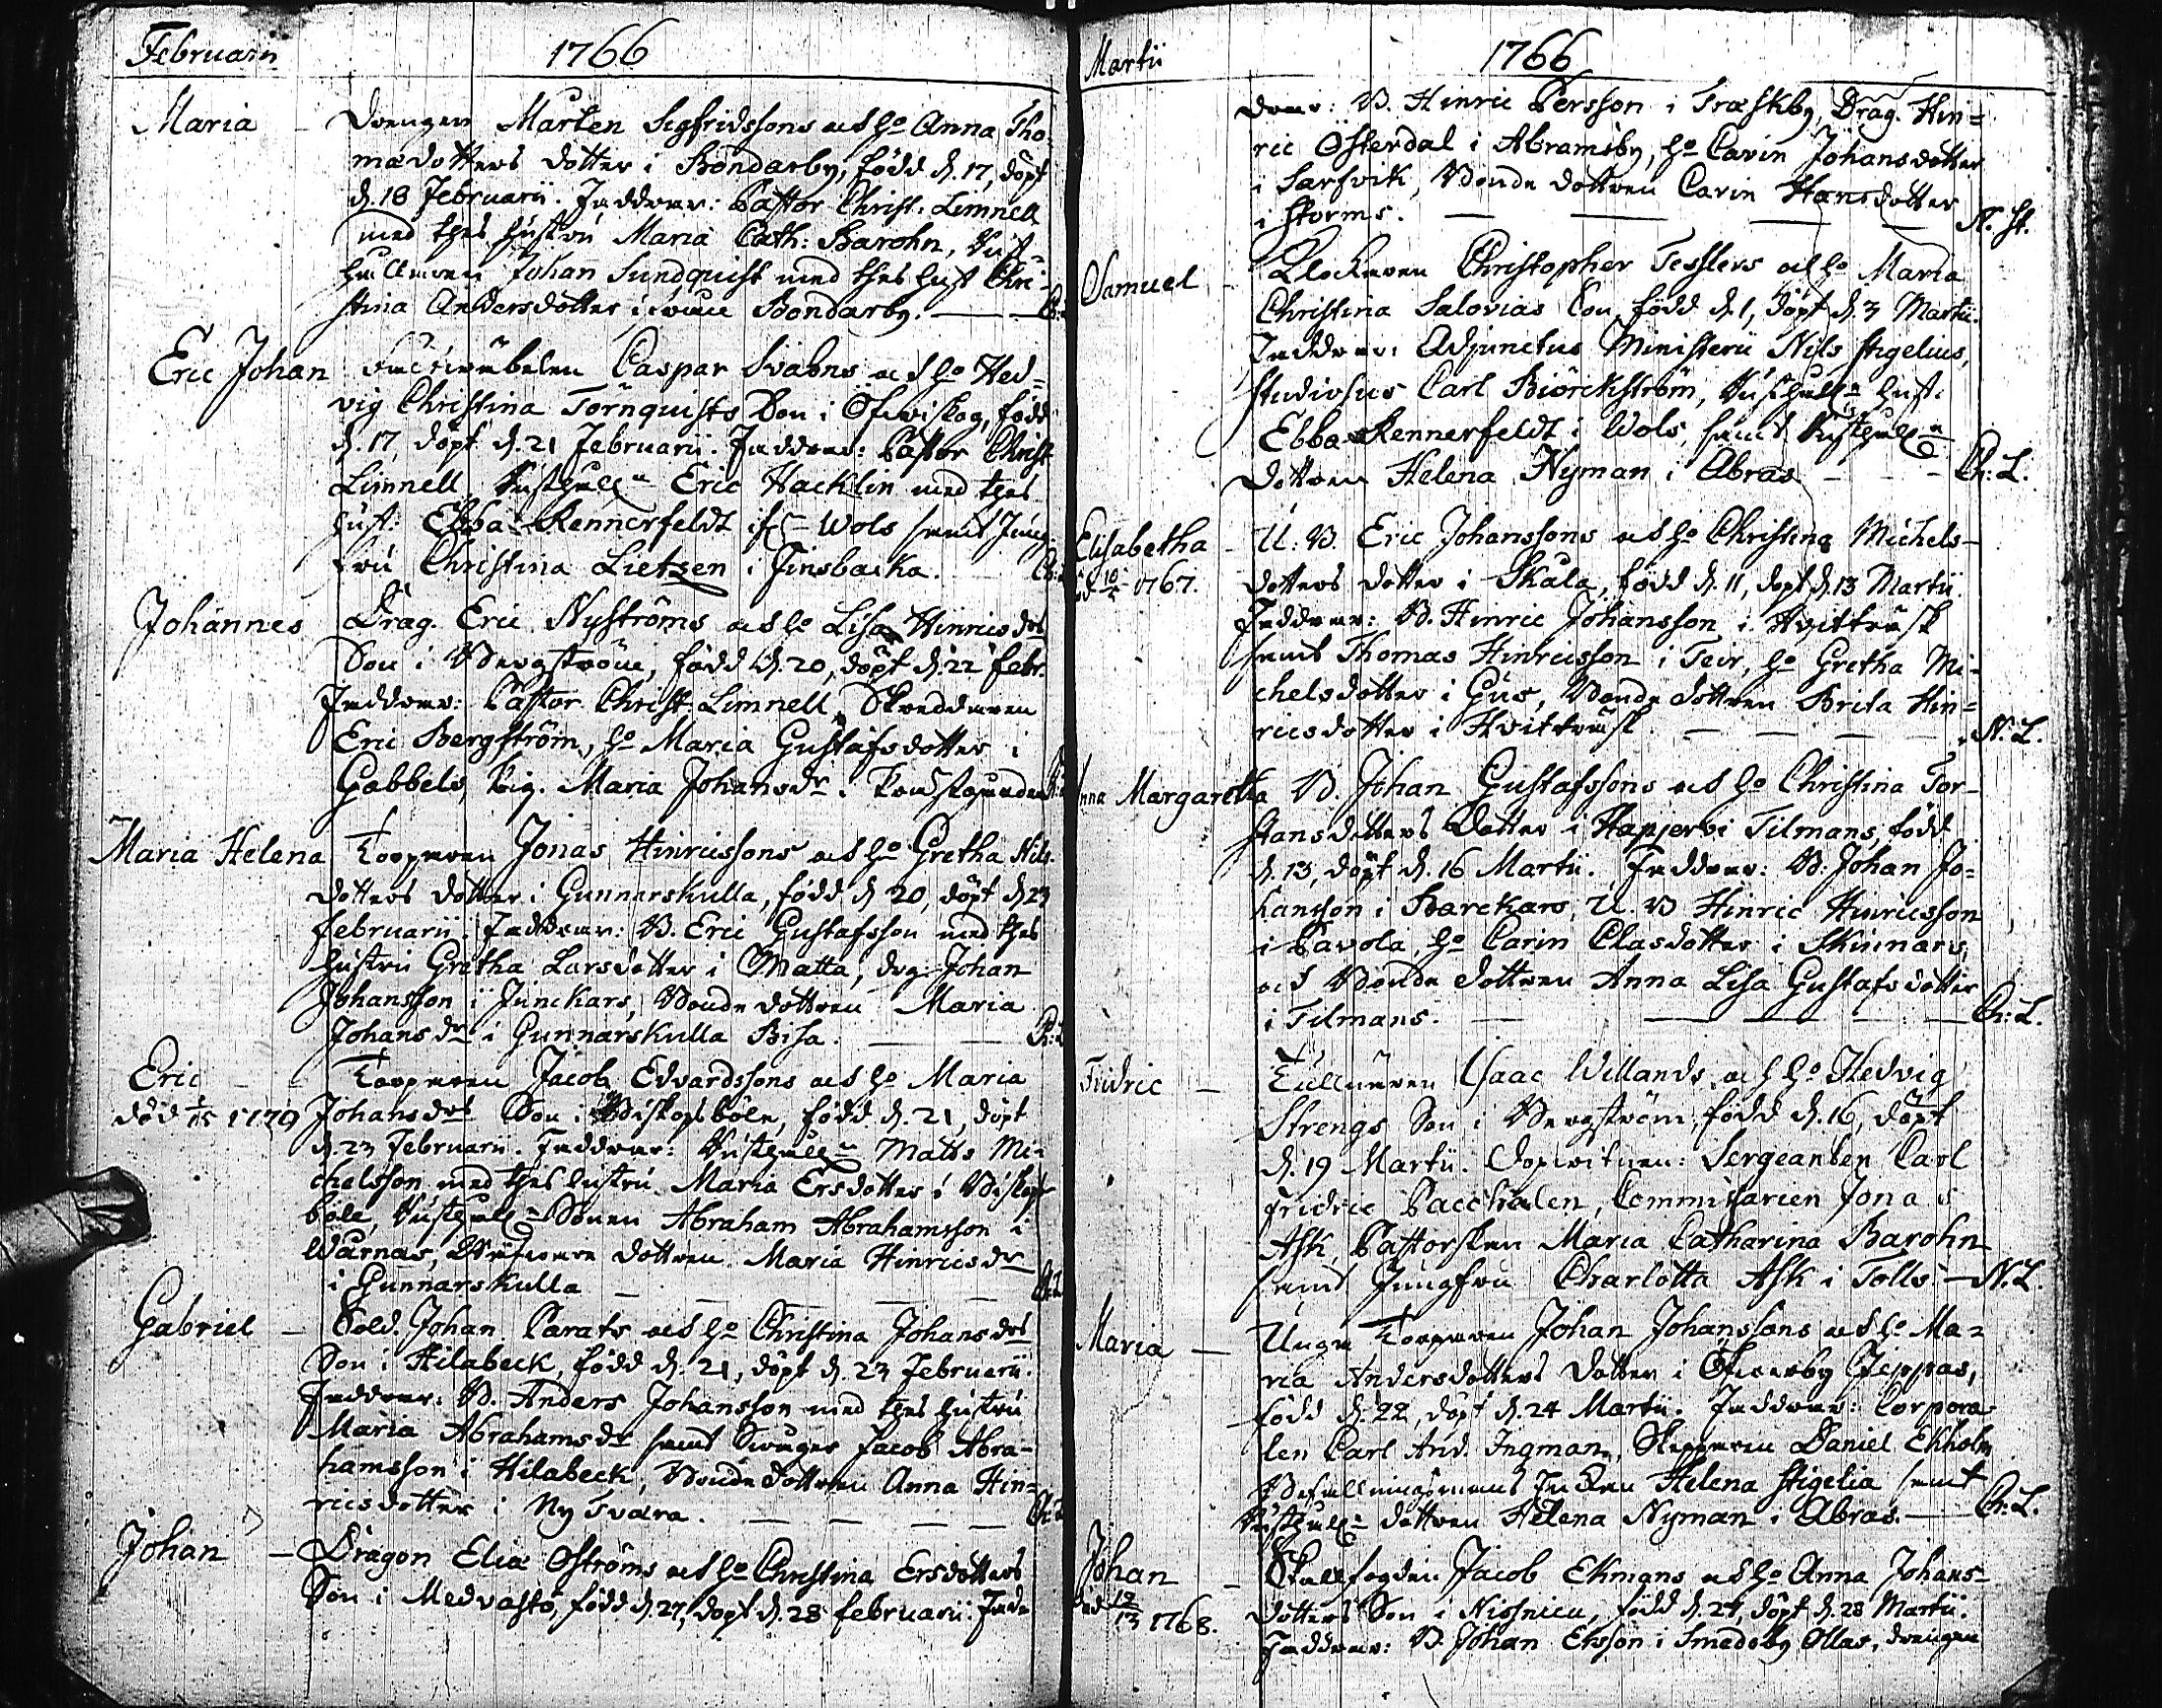 Februarii 1766
Maria - Drengen Mårten Sigfridssons och ho Anna Tho-
mædotters dotter i Bondarby, född d. 17, döpt
d. 18 Februarii. Faddrar: Pastor Christ. Limnell
med thes hustru Maria Cath: Barohn, Rust-
hållaren Johan Sundquist med thes hust Chri-
stina Andersdotter ifrån Bondarby.
Eric Johan Caspar Svahns och ho Hed-
vig Christina Törnquists Son i Öfwiskog, född
d. 17, döpt d. 21 Februarii. Faddrar: Pastor Christ
Limnell Rusthålln Eric Hacklin med thes
hust: Ebba Rennerfeldt Wols samt Jung-
fru Christina Lietzen i Finsbacka.
Johannes Drag. Eric Nyströms och ho Lisa Hinricsdrs
Son i Bergström, född d. 20, döpt d. 22 Febr.
Faddrar: Pastor Christ. Limnell, Skreddaren
Eric Bergström, ho Maria Gustafsdotter i
Gabbels, Pig. Maria Johansdr i
Maria Helena Torparen Jonas Hinricssons och ho Gretha Nils-
dotters dotter i Gunnarskulla, född d 20, döpt d 23
Februarii. Faddrar: B. Eric Gustafsson med thes
hustru Gretha Larsdotter i Matta, drg. Johan
Johansson i Junckars, Bonde dottren Maria
Johansdr i Gunnarskulla Bisa.
Eric - Torparen Jacob Edvardssons och ho Maria
död 1779 Johansdrs Son i Biskopsböle, född d. 21, döpt
d. 23 Februarii. Faddrar: Rusthålln Matts Mi-
chelsson med thes hustru Maria Ersdotter i Biskops
böle, Rusthålln Sonen Abraham Abrahamsson i
Warnas, dottren Maria Hinricsdr
i Gunnarskulla
Gabriel - Sold. Johan Parats och ho Christina Johansdrs
Son i Hilabeck, född d. 21, döpt d. 23 Februarii.
Faddrar: B. Anders Johansson med thes hustru
Maria Abrahamsdr samt Drengen Jacob Abra-
hamsson i Hilabeck, Bonde dottren Anna Hin-
ricsdotter i Ny Tvara.
Johan - Dragon Eliæ Öströms och ho Christina Ersdotters
Son i Medvastö, född d. 27, döpt d. 28 Februarii. Fad-
Martii 1766
drar: B. Hinric Persson i Træskby, Drag. Hin=
ric Österdal i Abramsby, ho Carin Johansdotter
i Sarfvik, Bonde dottren Carin Hansdotter
i Storms. N. St.
Samuel - Klockaren Christopher Tesslers och ho Maria
Christina Salovias Son, född d. 1, döpt d. 3 Martii.
Faddrar: Adjunctus Ministerii Nils Stigelius,
Studiosus Carl Biörckström, Rusthålln hust:
Ebba Rennerfeldt i Wols, samt Rusthålln
dottren Helena Nyman i Abras - Ch: L.
Elisabetha - U: B. Eric Johanssons och ho Christina Michels-
1767. dotters dotter i Skala, född d. 11, döpt d. 13 Martii.
Faddrar: B. Hinric Johansson i Hvitträsk
samt Thomas Hinricsson i Teir, ho Gretha Mi-
chelsdotter i Gus, Bonde dottren Brita Hin=
ricsdotter i Hvitträsk N. L.
Anna Margaretha B. Johan Gustafssons och ho Christina Tor-
stansdotters dotter i Hapjervi Tilmans, född
d. 13, döpt d. 16 Martii. Faddrar: B. Johan Jo=
hansson i Barckars, U. B Hinric Hinricsson
i Pavola, ho Carin Clasdotter i Skinnars,
och Bonde dottren Anna Lisa Gustafsdotter
i Tilmans. Ch: L.
Fridric - Tullnären Isaac Willands och ho Hedvig
Strengs Son i Bergström, född d. 16, döpt
d. 19 Martii. Dopvitnen: Sergeanten Carl
Fridric Pacchalen, Commissarien Jonas
Ask, Pastorskan Maria Catharina Barohn
samt Jungfru Charlotta Ask i Tolls. - N. L.
Maria - Unge Torparen Johan Johanssons och ho Ma-
ria Andersdotters dotter i Öfwerby Jeppas,
född d. 22, döpt d. 24 Martii. Faddrar: Corpora-
len Carl And. Ingman, Skepparen Daniel Ekholm
Befallningsmans Enkan Helena Stigelia samt
Rusthålln dottren Helena Nyman i Abras. - Ch: L.
Johan - Skallfogden Jacob Ekmans och ho Anna Johans-
död 12/13 1768. dotters Son i Nissnicu, född d. 27, döpt d. 28 Martii.
Faddrar: B. Johan Ersson i Smedsby Ollas, drengen